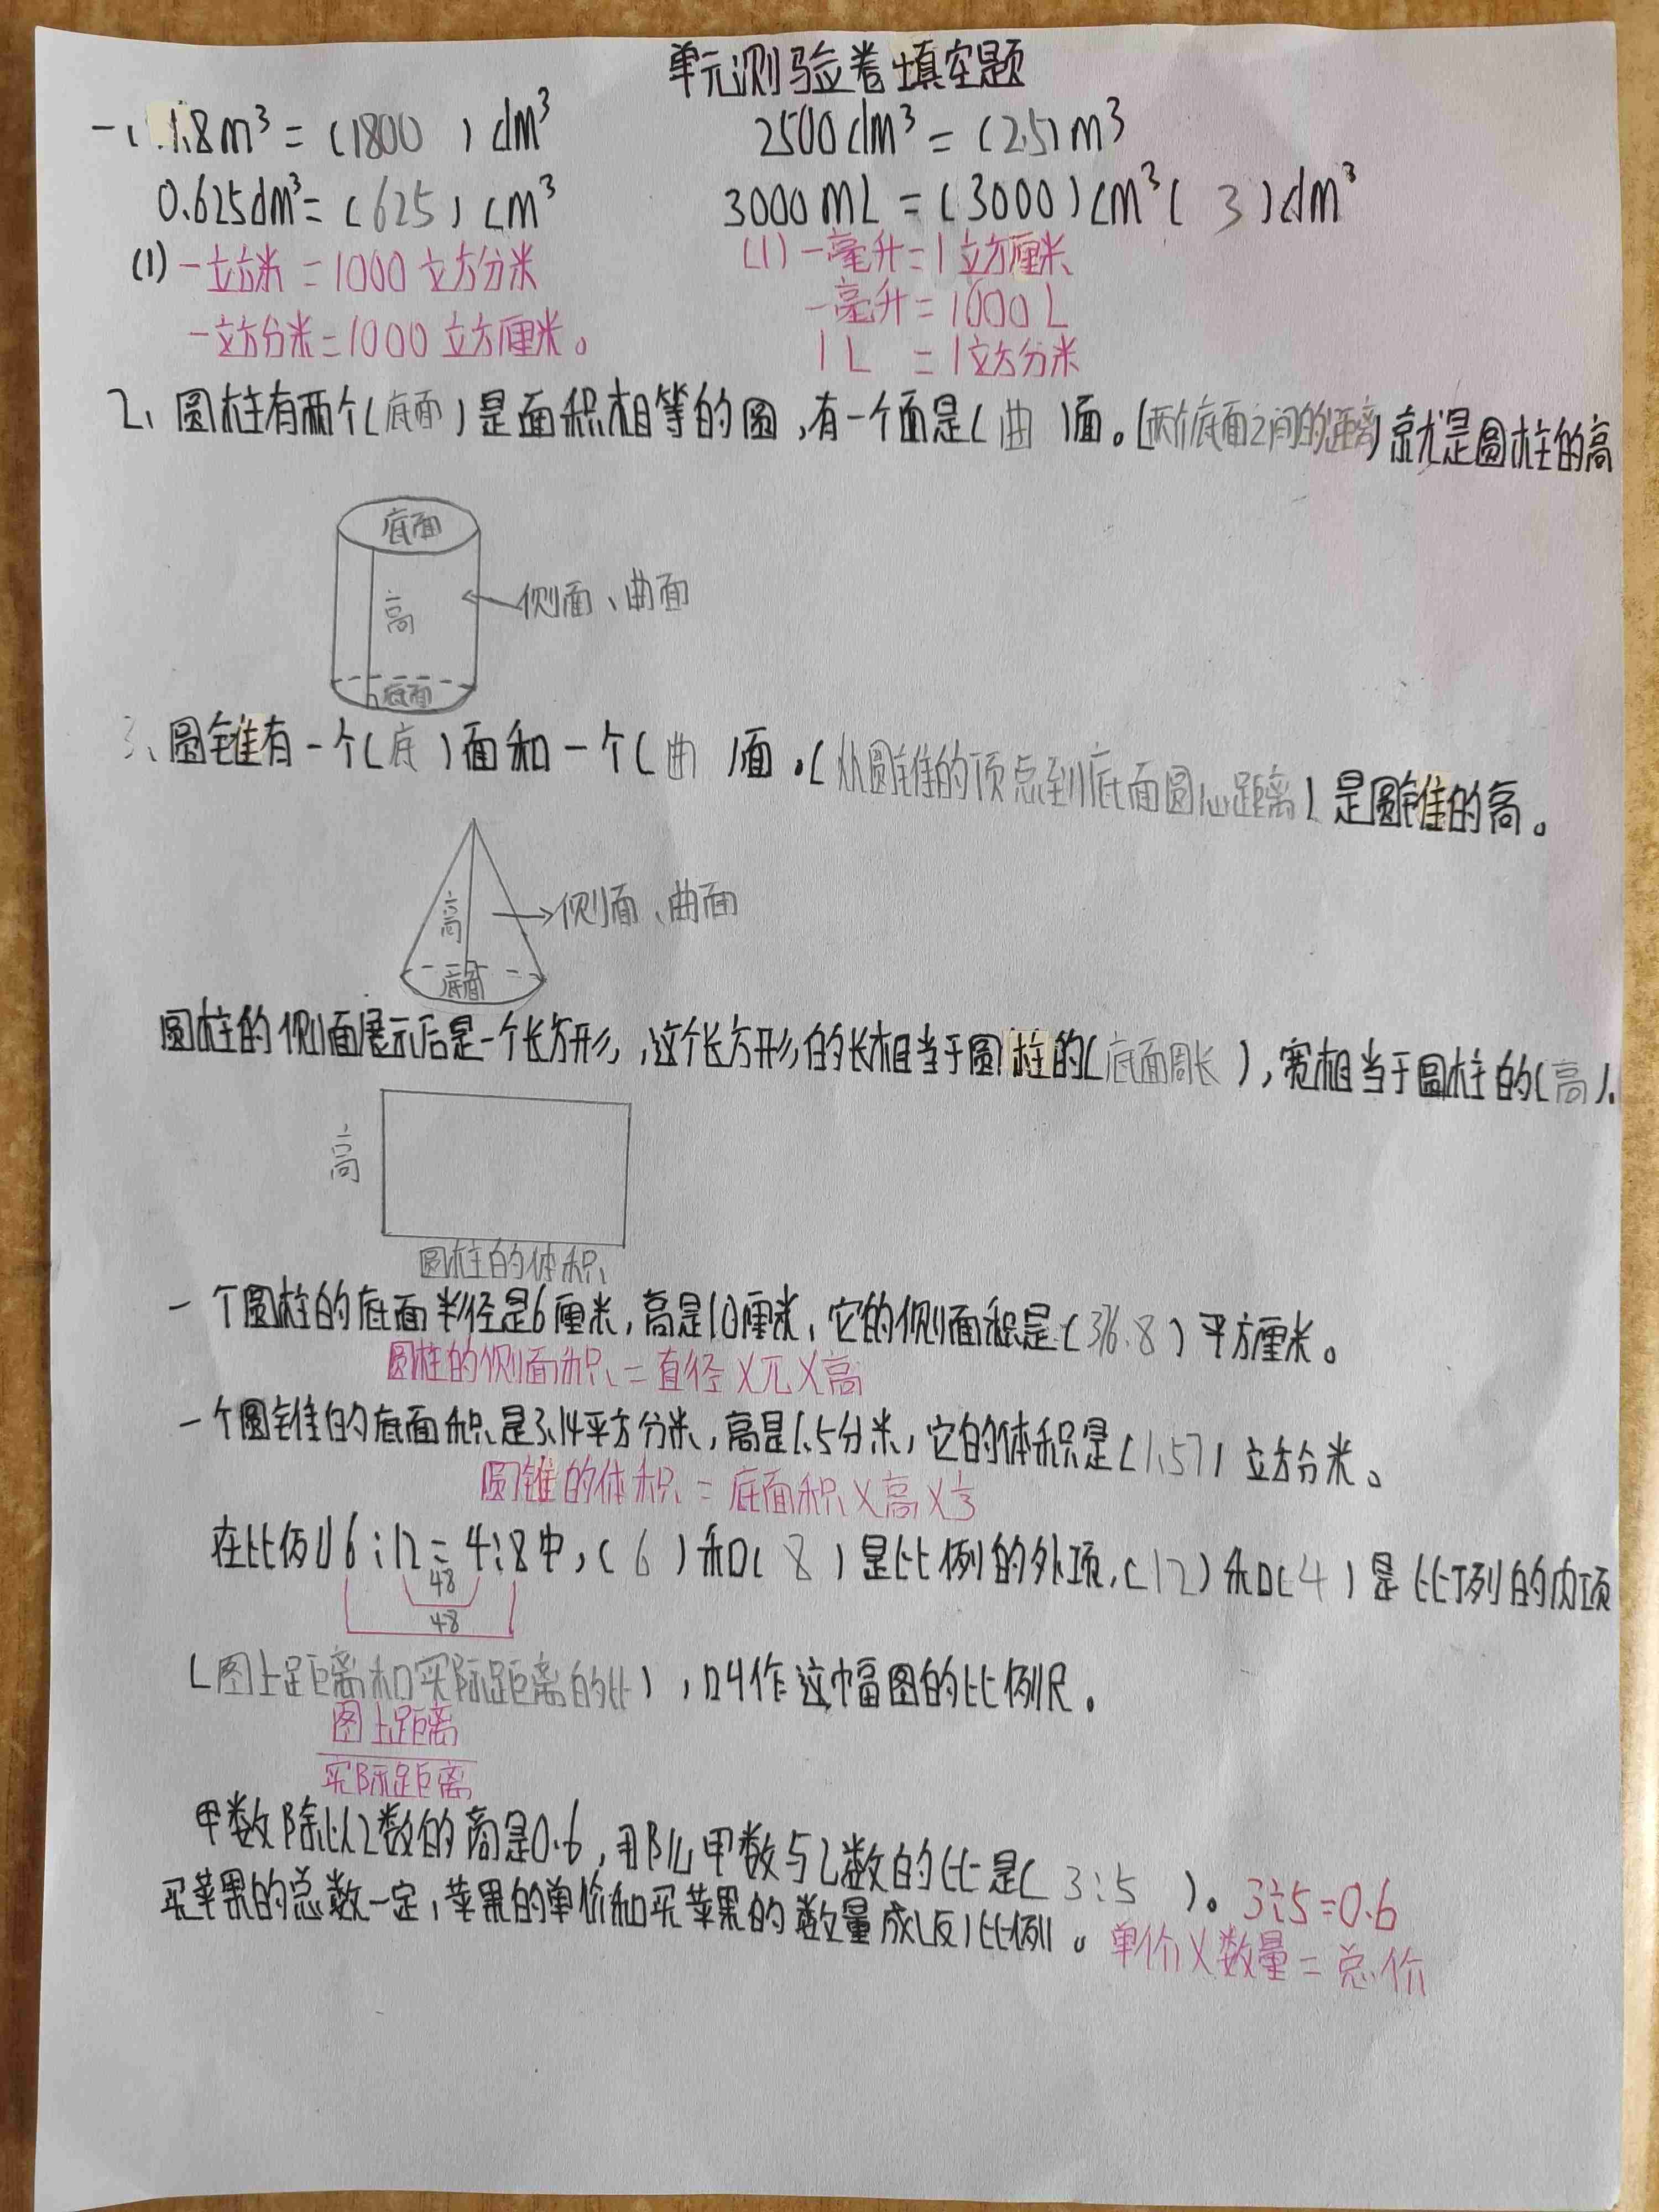 单元测验卷填空题
一、1.8m³=(1800)dm³ 2500dm³=(2.5)m³
0.625dm³=(625)cm³ 3000mL=(3000)cm³(3)dm³
(1)一立方米=1000立方分米 (1)一毫升=1立方厘米
一毫升=1000L
一立方分米=1000立方厘米。
1L=1立方分米
2、圆柱有两个(底面)是面积相等的圆,有一个面是(曲)面。(两个底面之间的距离)就是圆柱的高
底面
高
侧面、曲面
底面
3、圆锥有一个(底)面和一个(曲)面。(从圆锥的顶点到底面圆心距离)是圆锥的高。
高
侧面、曲面
底面
圆柱的侧面展示后是一个长方形,这个长方形的长相当于圆柱的(底面周长),宽相当于圆柱的(高)。
高
圆柱的体积
一个圆柱的底面半径是6厘米,高是10厘米,它的侧面积是(376.8)平方厘米。
圆柱的侧面积=直径×兀×高
一个圆锥的底面积是3.14平方分米,高是1.5分米,它的体积是(1.57)立方分米。
圆锥的体积=底面积×高×⅓
在比例6:12=4:8中,(6)和(8)是比例的外项,(12)和(4)是比例的内项
48
48
(图上距离和实际距离的比),叫作这幅图的比例尺。
图上距离
实际距离
甲数除以乙数的商是0.6,那么甲数与乙数的比是(3:5)。3÷5=0.6
买苹果的总数一定,苹果的单价和买苹果的数量成(反)比例。单价×数量=总价